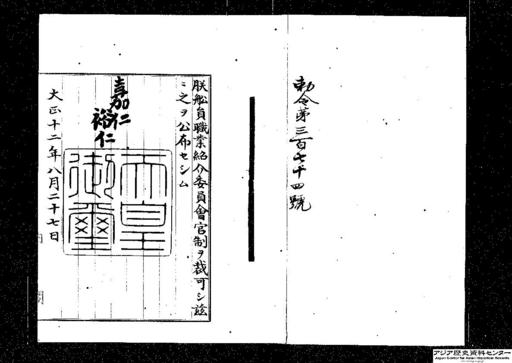 勅令第三百七十四號
朕船員職業紹介委員會官制ヲ裁可シ茲
ニ之ヲ公布セシム
嘉仁
裕仁
天皇
御璽
大正十二年八月二十七日
アジア歴史資料センター
Japan Center for Asian Historical Records